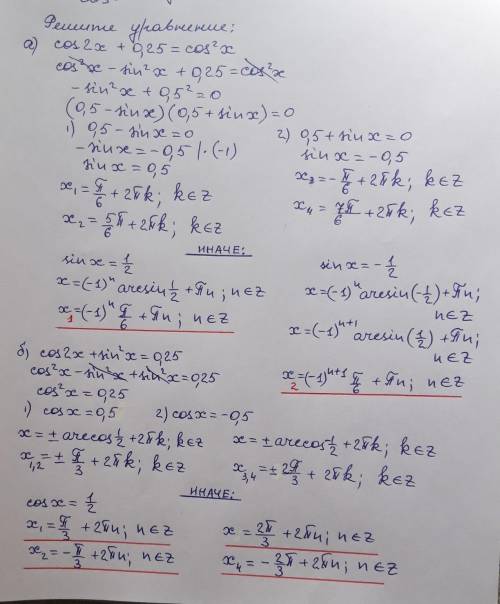 Решите уравнение:
а) cos2x + 0,25 = cos²x
cos²x − sin²x + 0,25 = cos²x
− sin²x + 0,5² = 0
(0,5 − sinx)(0,5 + sinx) = 0
1) 0,5 − sinx = 0
− sinx = −0,5 |·(−1)
sinx = 0,5
x₁ = π/6 + 2πk; k∈Z
x₂ = 5/6 π + 2πk; k∈Z
2) 0,5 + sinx = 0
sinx = −0,5
x₃ = −π/6 + 2πk; k∈Z
x₄ = 7π/6 + 2πk; k∈Z
ИНАЧЕ:
sinx = 1/2
x = (−1)ⁿ arcsin 1/2 + πn; n∈Z
x₁ = (−1)ⁿ π/6 + πn; n∈Z
sinx = −1/2
x = (−1)ⁿ arcsin(−1/2) + πn;
n∈Z
x = (−1)ⁿ⁺¹ arcsin(1/2) + πn;
n∈Z
x₂ = (−1)ⁿ⁺¹ π/6 + πn; n∈Z
б) cos2x + sin²x = 0,25
cos²x − sin²x + sin²x = 0,25
cos²x = 0,25
1) cosx = 0,5
x = ± arccos 1/2 + 2πk; k∈Z
x₁,₂ = ± π/3 + 2πk; k∈Z
2) cosx = −0,5
x = ± arccos −1/2 + 2πk; k∈Z
x₃,₄ = ± 2π/3 + 2πk; k∈Z
ИНАЧЕ:
cosx = 1/2
x₁ = π/3 + 2πn; n∈Z
x₂ = −π/3 + 2πn; n∈Z
x = 2π/3 + 2πn; n∈Z
x₄ = −2π/3 + 2πn; n∈Z